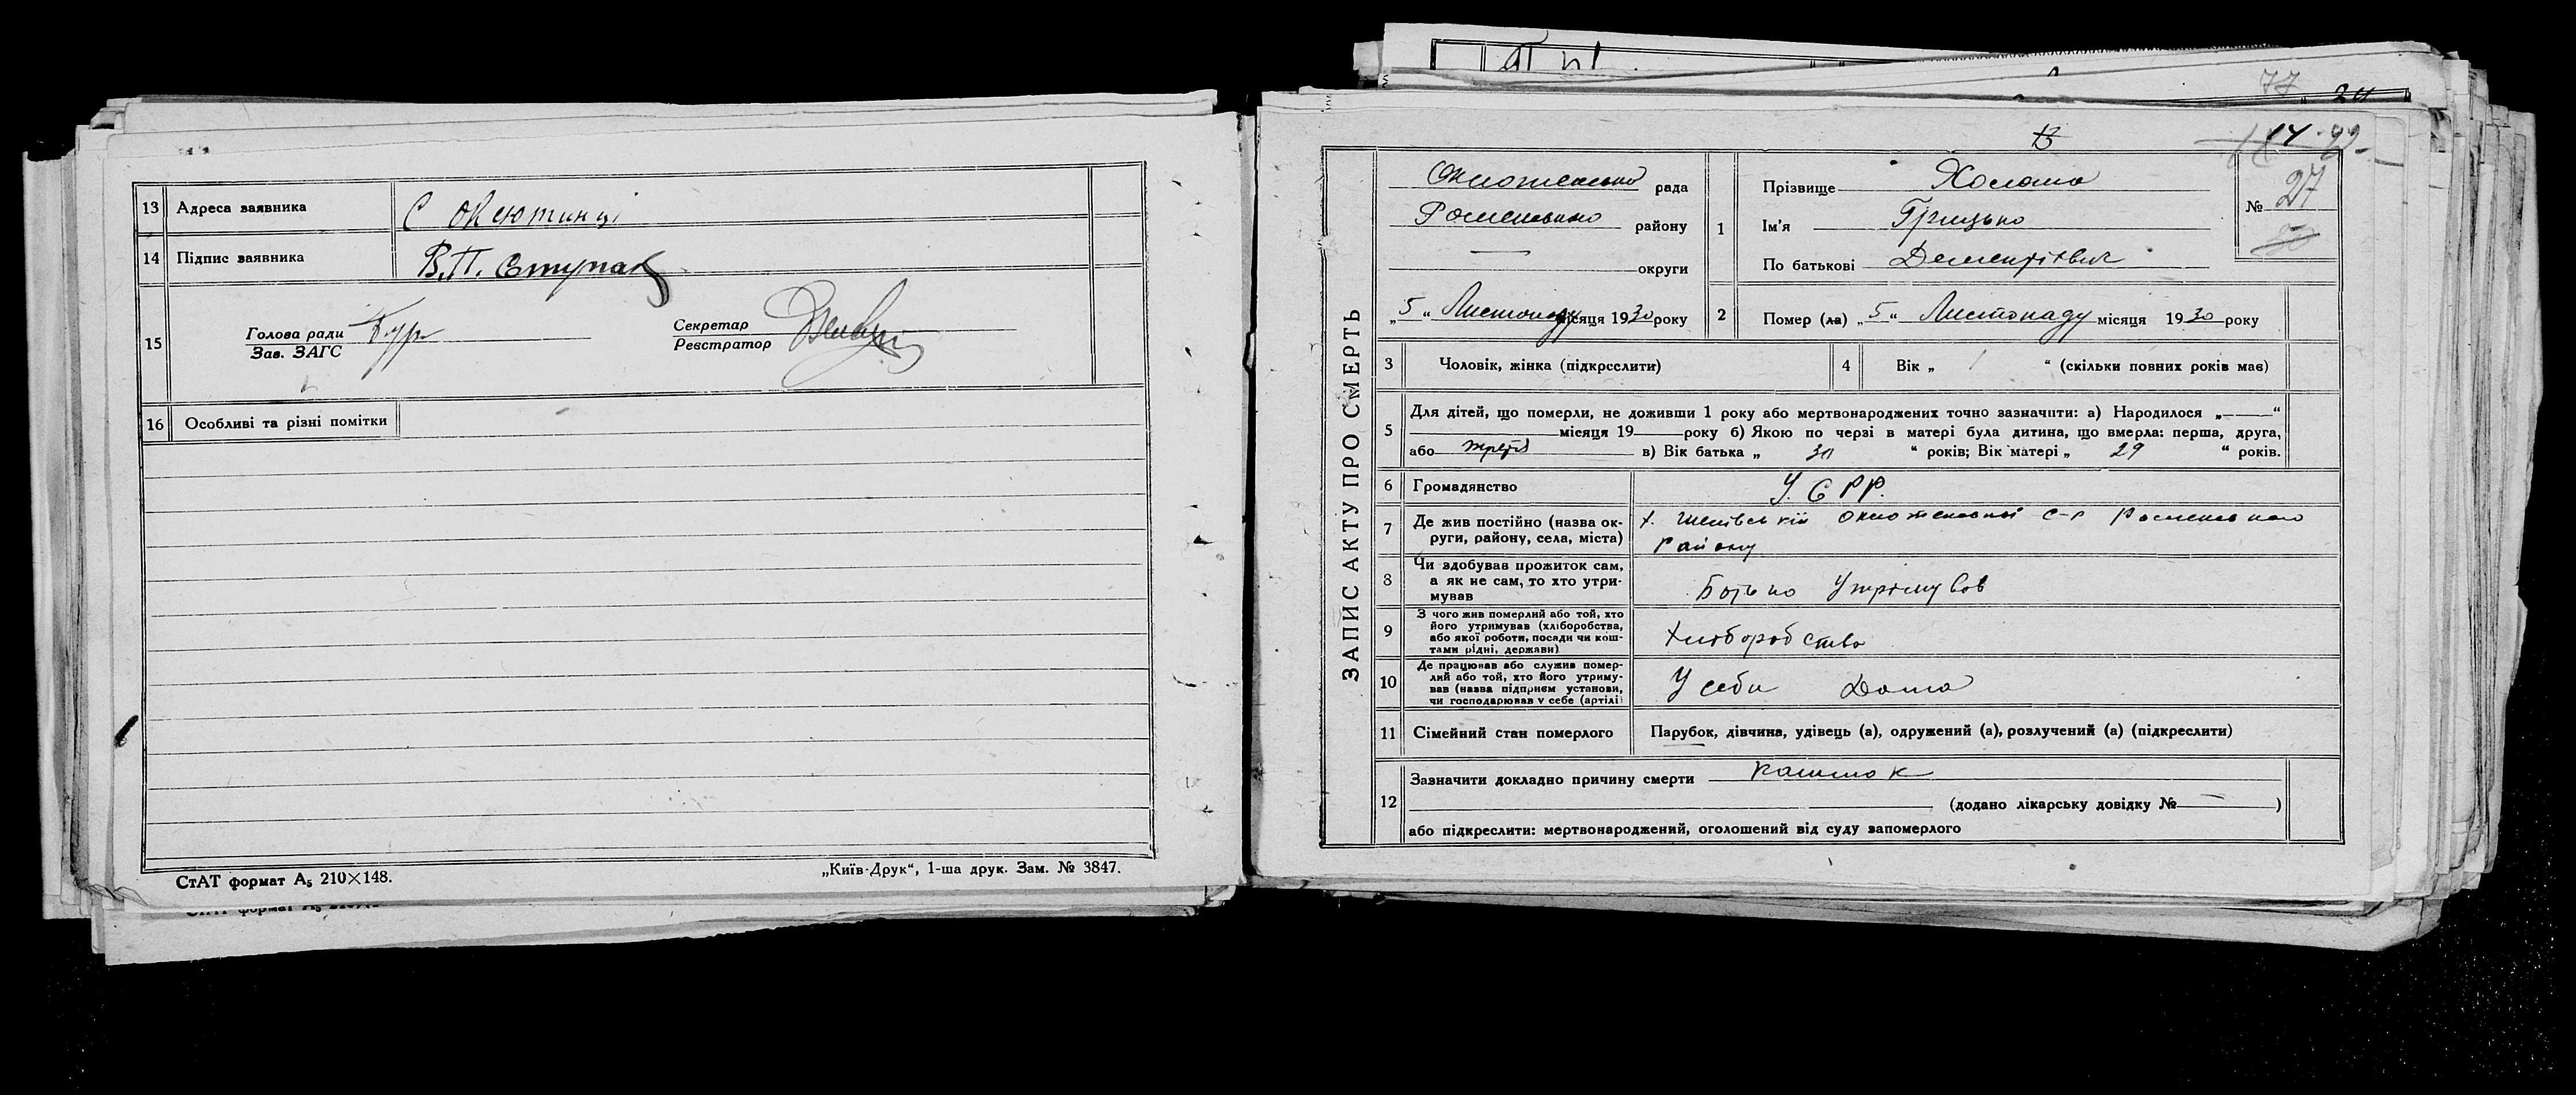 13 Адреса заявника С Оксютинці
14 Підпис заявника В.П. Ступак
15 Голова ради Кур
Зав. ЗАГС
Секретар
Реєстратор
16 Особливі та різні помітки
СтАТ формат А5 210×148.
„Київ-Друк“, 1-ша друк. Зам. № 3847.
77
13
14
ЗАПИС АКТУ ПРО СМЕРТЬ
рада
Роменського району
— округи
„5“ Листопаду місяця 1930 року
1 Прізвище Холоша
Ім'я Грицько
По батькові Дементієвич
№ 27
2 Помер (ла) „5“ Листопаду місяця 1930 року
3 Чоловік, жінка (підкреслити)
4 Вік „ 1 “ (скільки повних років має)
5 Для дітей, що померли, не доживши 1 року або мертвонароджених точно зазначити: а) Народилося „—“
— місяця 19— року б) Якою по черзі в матері була дитина, що вмерла: перша, друга,
або третя в) Вік батька „ “ років; Вік матері „ 29 “ років.
6 Громадянство У.С.Р.Р.
7 Де жив постійно (назва ок-
руги, району, села, міста)
х. с-р Роменського
Району
8 Чи здобував прожиток сам,
а як не сам, то хто утри-
мував
Батько Утрімував
9 З чого жив померлий або той, хто
його утримував (хліборобства,
або якої роботи, посади чи кош-
тами рідні, держави)
Хліборобство
10 Де працював або служив помер-
лий або той, хто його утриму-
вав (назва підприєм установи,
чи господарював у себе (артілі)
У себи Дома
11 Сімейний стан померлого
Парубок, дівчина, удівець (а), одружений (а), розлучений (а) (підкреслити)
12 Зазначити докладно причину смерти кашлюк
(додано лікарську довідку № — )
або підкреслити: мертвонароджений, оголошений від суду запомерлого